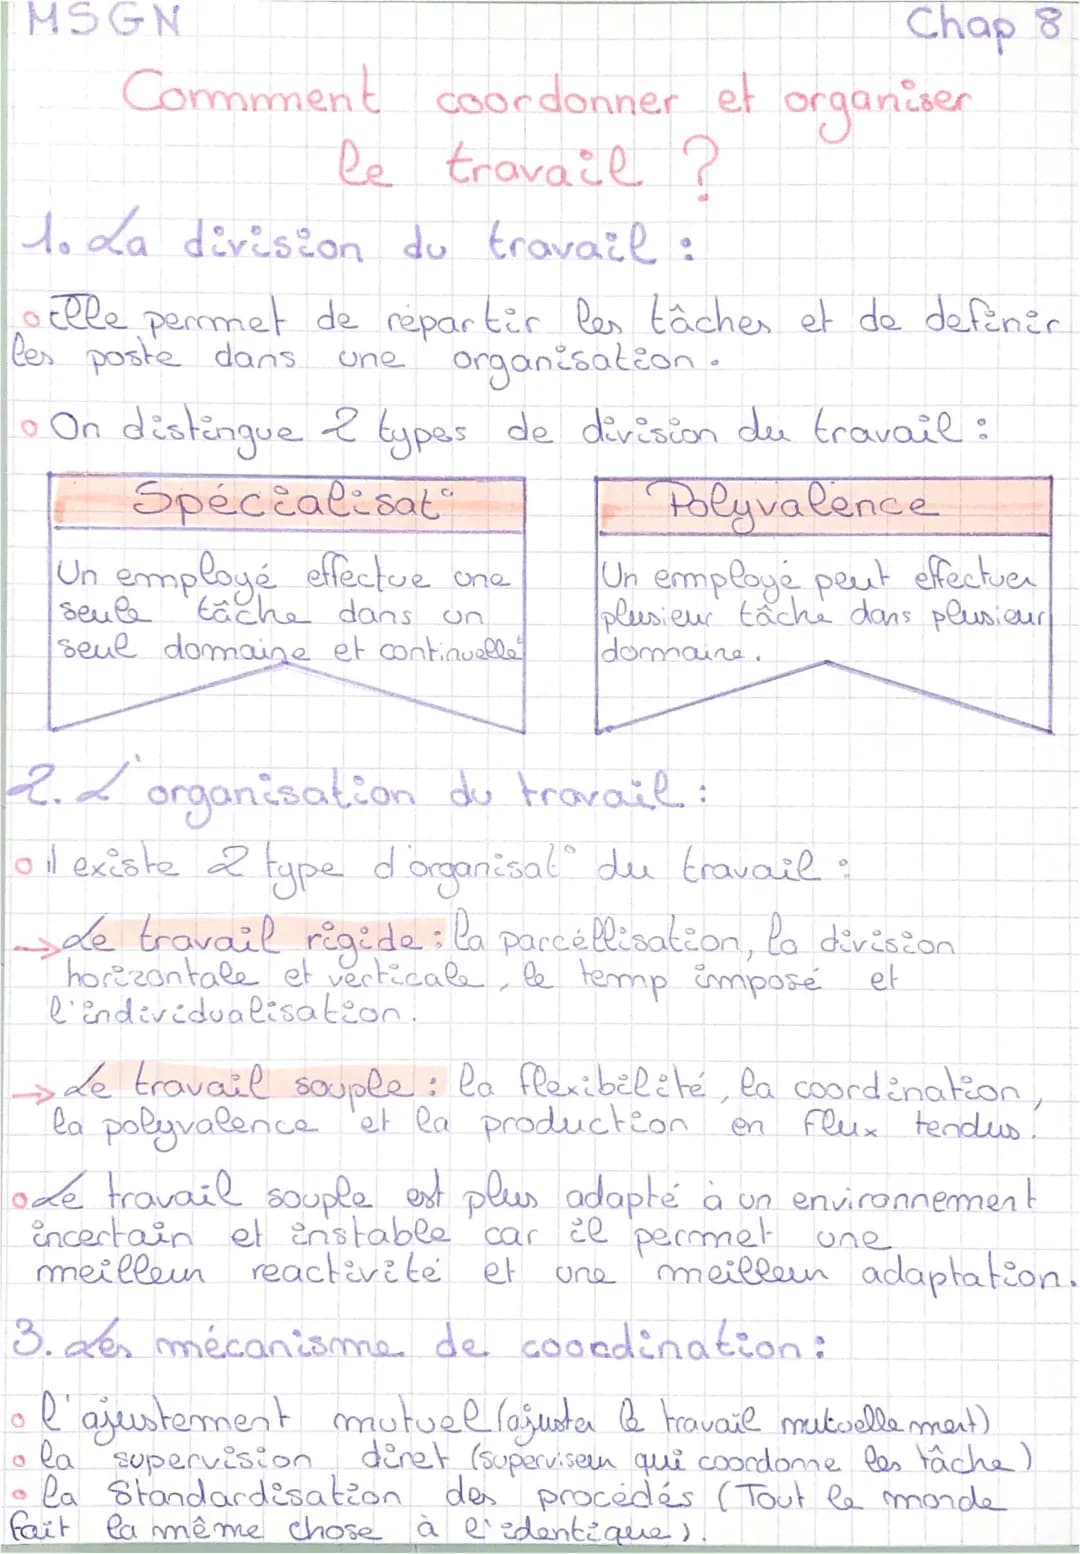 MSGN Chap 8
Commment coordonner et organiser
le travail ?
1. La division du travail :
Elle permet de répartir les tâches et de definir
les poste dans une organisation.
On distingue 2 types de division du travail :
Spécialisat°
Un employé effectue une
seule tâche dans un
seul domaine et continuelle
Polyvalence
Un employé peut effectuer
plusieur tâche dans plusieur
domaine.
2. L'organisation du travail :
il existe 2 type d'organisat° du travail :
→ Le travail rigide : la parcéllisation, la division
horizontale et verticale, le temp imposé et
l'individualisation.
→ Le travail souple : la flexibilité, la coordination,
la polyvalence et la production en flux tendus.
Le travail souple est plus adapté à un environnement
incertain et instable car il permet une
meilleur reactivité et une meilleur adaptation.
3. Les mécanisme de coordination :
l'ajustement mutuel (ajuster le travail mutuellement)
la supervision diret (superviseur qui coordonne les tâche)
la Standardisation des procédés (Tout le monde
fait la même chose à l'identique).